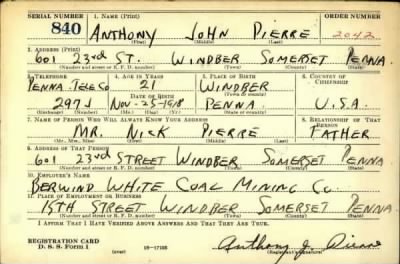 SERIAL NUMBER 1. NAME (Print) ORDER NUMBER
840 ANTHONY JOHN PIERRE 2042
(First) (Middle) (Last)
2. ADDRESS (Print)
601 23rd ST. WINDBER SOMERSET PENNA.
(Number and street or R. F. D. number) (Town) (County) (State)
3. TELEPHONE 4. AGE IN YEARS 5. PLACE OF BIRTH 6. COUNTRY OF CITIZENSHIP
PENNA. TELE CO 21 WINDBER
DATE OF BIRTH (Town or county)
297J NOV-25-1918 PENNA. U.S.A.
(Exchange) (Number) (Mo.) (Day) (Yr.) (State or country)
7. NAME OF PERSON WHO WILL ALWAYS KNOW YOUR ADDRESS 8. RELATIONSHIP OF THAT PERSON
MR. NICK PIERRE FATHER
(Mr., Mrs., Miss) (First) (Middle) (Last)
9. ADDRESS OF THAT PERSON
601 23rd STREET WINDBER SOMERSET PENNA
(Number and street or R. F. D. number) (Town) (County) (State)
10. EMPLOYER'S NAME
BERWIND WHITE COAL MINING CO.
11. PLACE OF EMPLOYMENT OR BUSINESS
15TH STREET WINDBER SOMERSET PENNA
(Number and street or R. F. D. number) (Town) (County) (State)
I AFFIRM THAT I HAVE VERIFIED ABOVE ANSWERS AND THAT THEY ARE TRUE.
REGISTRATION CARD
D. S. S. Form 1 (over) 16-17105 Anthony J. Pierre
(Registrant's signature)